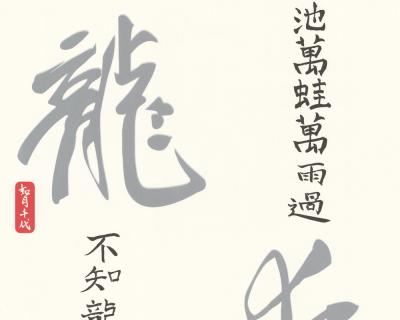 池萬蛙萬雨過
龍
不知龍